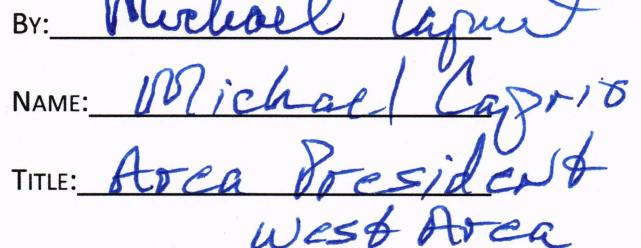 BY: Michael Caprio
NAME: Michael Caprio
TITLE: Area President
West Area